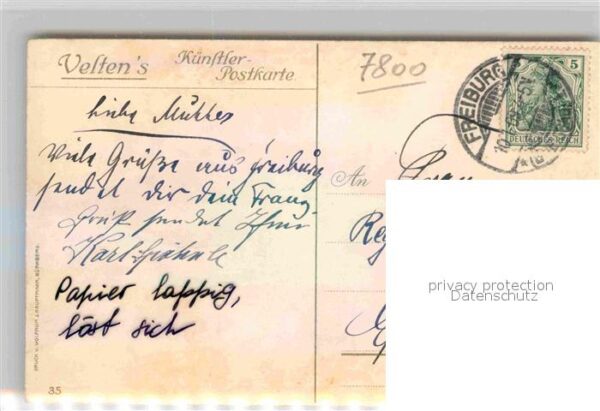 Velten's Künstler-
Postkarte
7800
FREIBURG
5
DEUTSCHES REICH
liebe Mutter
Viele Grüße aus Freiburg
sendet dir dein Franz
Gruß sendet Ihnen
Karl
Papier lappig,
löst sich
An
Frau
privacy protection
Datenschutz
35